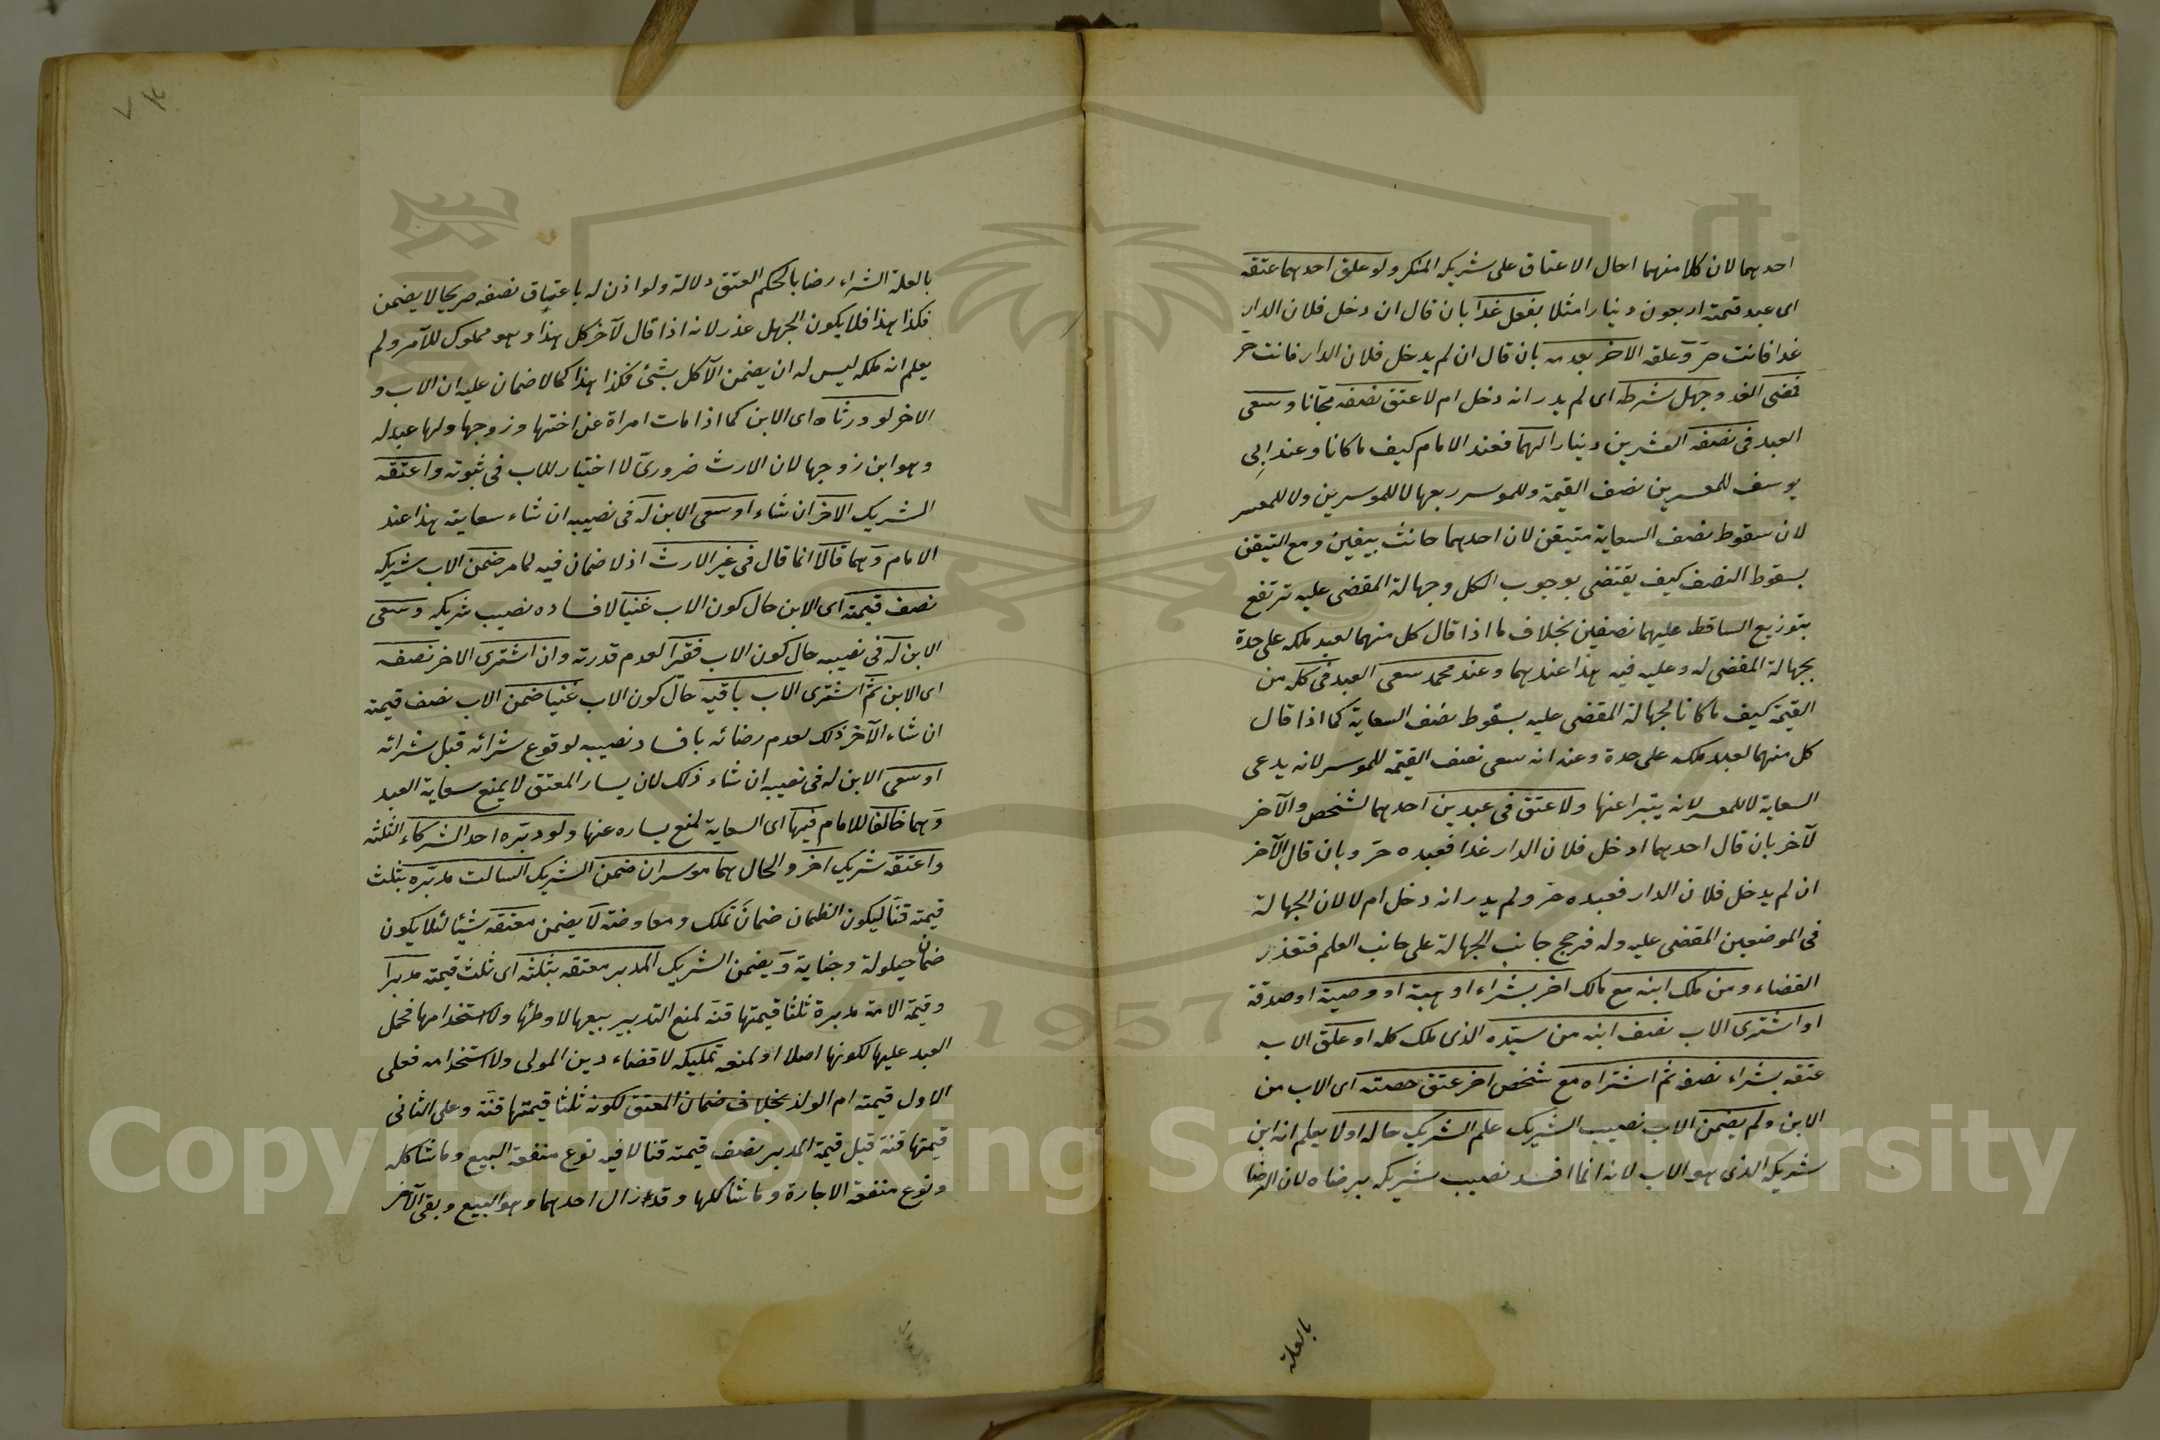 احدهما لان كلا منهما احال الاعتاق على شريكه المنكر ولو علق احدهما عتقه
اى عبد قيمته اربعون دينارا مثلا بفعل غدا بان قال ان دخل فلان الدار
غدا فانت حر وعلقه الاخر بعدمه بان قال ان لم يدخل فلان الدار فانت حر
فمضى الغد وجهل شرطه اى لم يدر انه دخل ام لا عتق نصفه مجانا وسعى
العبد فى نصفه العشرين دينارا لهما فعند الامام كيف ما كانا وعند ابى
يوسف للمعسرين نصف القيمة وللموسر ربعها لا للموسرين ولا للمعسر
لان سقوط نصف السعاية متيقن لان احدهما حانث بيقين ومع التيقن
بسقوط النصف كيف يقتضى بوجوب الكل وجهالة المقضى عليه ترتفع
بتوزيع الساقط عليهما نصفين بخلاف ما اذا قال كل منهما لعبد ملكه على حدة
بجهالة المقضى له وعليه فيه هذا عندهما وعند محمد سعى العبد فى كله من
القيمة كيف ما كانا لجهالة المقضى عليه بسقوط نصف السعاية كما اذا قال
كل منهما لعبد ملكه على حدة وعند انه سعى نصف القيمة للموسر لانه يدعى
السعاية لا للمعسر لانه يتبرا عنها ولا عتق فى عبدين احدهما لشخص والآخر
لآخر بان قال احدهما ادخل فلان الدار غدا فعبده حر وبان قال الآخر
ان لم يدخل فلان الدار فعبده حر ولم يدر انه دخل ام لا لان الجهالة
فى الموضعين المقضى عليه وله فرجح جانب الجهالة على جانب العلم فتعذر
القضاء ومن ملك ابنه مع مالك اخر بشراء او هبة او وصية او صدقة
او اشترى الاب نصف ابنه من سيده الذى ملك كله او علق الاب
عتقه بشراء نصفه ثم اشتراه مع شخص اخر عتق حصته اى الاب من
الابن ولم يضمن الاب نصيب الشريك علم الشريك حاله اولا يعلم انه ابن
شريكه الذى هو الاب لانه انما افسد نصيب شريكه برضاه لان الرضا
بالعلة
بالعلة الشراء رضا بالحكم العتق دلالة ولو اذن له باعتاق نصفه صريحا لا يضمن
فكذا هذا فلا يكون الجهل عذر لانه اذا قال لآخر كل هذا وهو مملوك للآمر ولم
يعلم انه ملكه ليس له ان يضمن الآكل بشئ فكذا هذا كما لا ضمان عليه ان الاب و
الاخر لو ورثاه اى الابن كما اذا مات امراة عن اختها وزوجها ولها عبد له
وهو ابن زوجها لان الارث ضرورى لا اختيار للاب فى ثبوته واعتقه
الشريك الاخر ان شاء او سعى الابن له فى نصيبه ان شاء سعايته هذا عند
الامام وهما قالا انما قال فى غير الارث اذ لا ضمان فيه لما مر ضمن الاب شريكه
نصف قيمته اى الابن حال كون الاب غنيا لافساده نصيب شريكه وسعى
الابن له فى نصيبه حال كون الاب فقيرا لعدم قدرته وان اشترى الاخر نصفه
اى الابن ثم اشترى الاب باقيه حال كون الاب غنيا ضمن الاب نصف قيمته
ان شاء الآخر ذلك لعدم رضائه بافساد نصيبه لوقوع شرائه قبل شرائه
او سعى الابن له فى نصيبه ان شاء ذلك لان يسار المعتق لا يمنع سعاية العبد
وهما خالفا للامام فيها اى السعاية لمنع يساره عنها ولو دبره احد الشركاء الثلثة
واعتقه شريك اخر والحال هما موسران ضمن الشريك الساكت مدبره بثلث
قيمته قنا ليكون الضمان ضمان تملك ومعاوضة لا يضمن معتقه شيئا لئلا يكون
ضمان حيلولة وجناية ويضمن الشريك المدبر معتقه بثلثه اى ثلث قيمته مدبرا
وقيمة الامة مدبرة ثلثا قيمتها قنة لمنع التدبير بيعها لا وطئها ولا استخدامها فحمل
العبد عليها لكونها اصلا او لمنعه تمليكه لا قضاء دين المولى ولا استخدامه فعلى
الاول قيمته ام الولد بخلاف ضمان المعتق لكونه ثلثا قيمتها قنة وعلى الثانى
قيمتها قنة قبل قيمة المدبر نصف قيمته قنا لا فيه نوع منفعة البيع وما شاكله
ونوع منفعة الاجارة وما شاكلها وقد زال احدهما وهو البيع وبقى الآخر
Copyright © King Saud University
1957